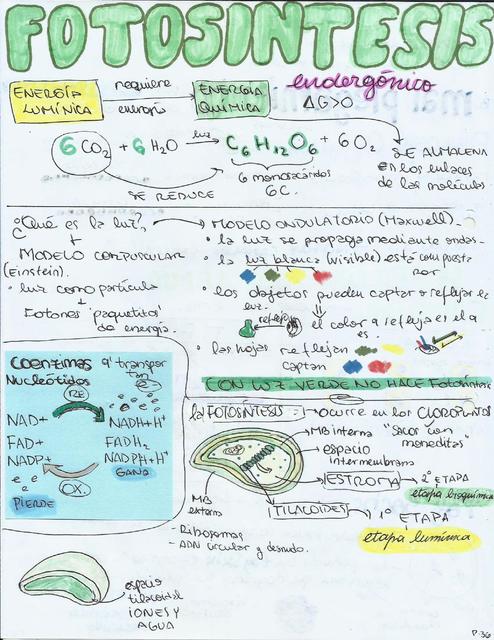 FOTOSINTESIS
ENERGÍA LUMÍNICA
requiere energía
ENERGÍA QUÍMICA
endergónico
ΔG>0
6 CO2 + 6 H2O luz C6 H12 O6 + 6 O2
SE REDUCE
6 monosacáridos
6C.
SE ALMACENA
en los enlaces
de las moléculas
¿Qué es la luz?
MODELO CORPUSCULAR
(Einstein).
• luz como partícula
Fotones "paquetitos"
de energía.
MODELO ONDULATORIO (Maxwell).
• la luz se propaga mediante ondas.
• la luz blanca (visible) está compuesta
por
• los objetos pueden captar o reflejar la
luz.
refleja
el color q refleja es el q
es.
• las hojas reflejan
captan
CON LUZ VERDE NO HACE Fotosíntesis
Coenzimas q' transportan
Nucleótidos e-
RE
NAD+ NADH+H+
FAD+ FADH2
NADP+ NADPH+H+
e- e-
GANA
PIERDE
OX.
la FOTOSÍNTESIS → ocurre en los CLOROPLASTOS
MB interna "saco con
moneditas"
espacio
intermembrana
ESTROMA → 2ª ETAPA
etapa bioquímica
TILACOIDES → 1ª ETAPA
etapa lumínica
MB
externa
- Ribosomas
- ADN circular y desnudo.
espacio
tilacoidal
IONES Y
AGUA
P.36